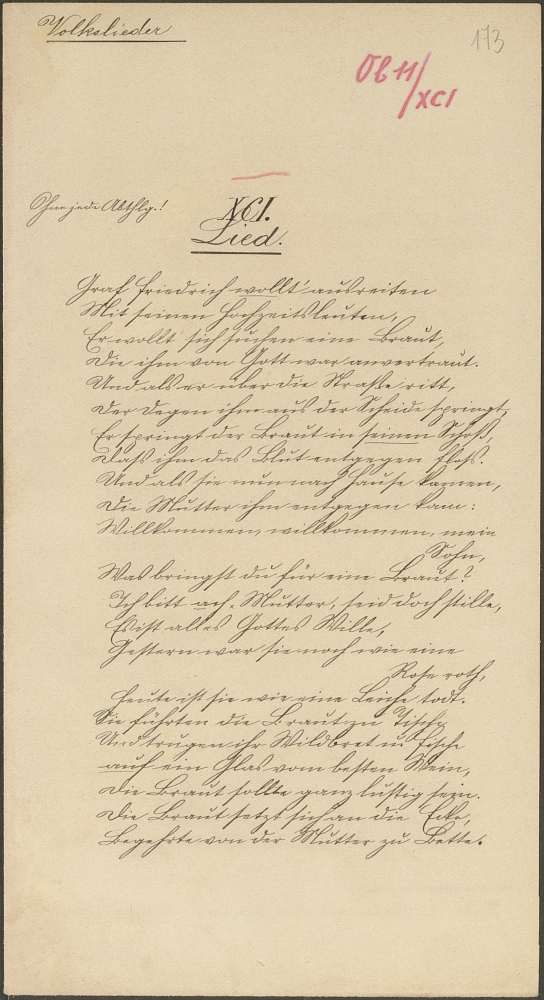 Volkslieder
173
Ob 11/
XCI
Ohne jede Abthlg.!
XCI.
Lied.
Graf Friedrich wollt' ausreiten
Mit seinen Hochzeitsleuten,
Er wollt' sich suchen eine Braut,
Die ihm von Gott war anvertraut.
Und als er über die Straße ritt,
Der Degen ihm aus der Scheide springt,
Er springt der Braut in seinen Schoß,
Dass ihm das Blut entgegen floss.
Und als sie nun nach Hause kamen,
Die Mutter ihm entgegen kam:
Willkommen, willkommen, mein
Sohn,
Was bringst du für eine Braut?
Ich bitt ach, Mutter, seid doch stille,
Es ist alles Gottes Wille,
Gestern war sie noch wie eine
Rose roth,
Heute ist sie wie eine Leiche todt.
Sie führten die Braut zu Tische
Und trugen ihr Wildbret u. Fische
auf ein Glas vom besten Wein,
Die Braut sollte ganz lustig sein.
Die Braut setzt sich an die Ecke,
Begehrte von der Mutter zu Bette.